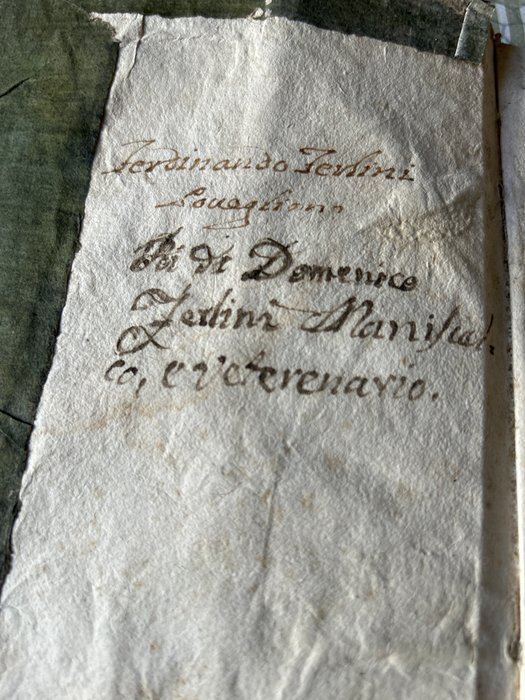 Ferdinando Ferlini
Lovegliano
Poi di Domenico
Ferlini Maniscal-
co, e veterenario.